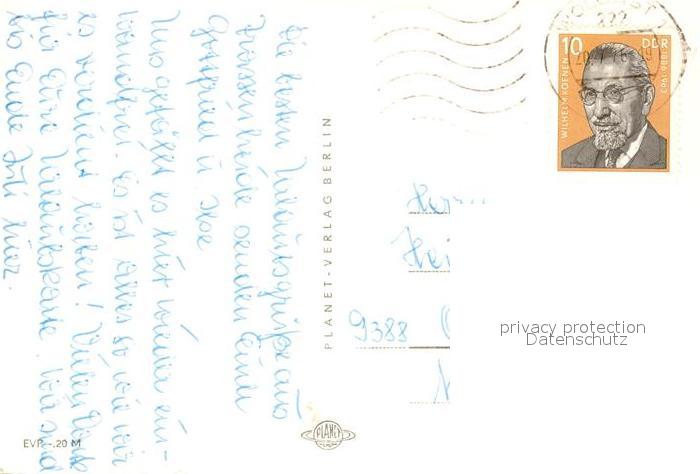 Die besten Urlaubsgrüße aus
senden Euch
Gottfried u. Ilse
Uns gefällt es hier wieder ein-
wandfrei. Es ist alles so wie wir
es verlassen haben! Vielen Dank
für Eure Urlaubskarte. Wir sind
bis Ende Juli hier.
EVP -.20 M
PLANET-VERLAG BERLIN
PLANET
10
DDR
WILHELM KOENEN
1886-1963
Herrn
9388
privacy protection
Datenschutz